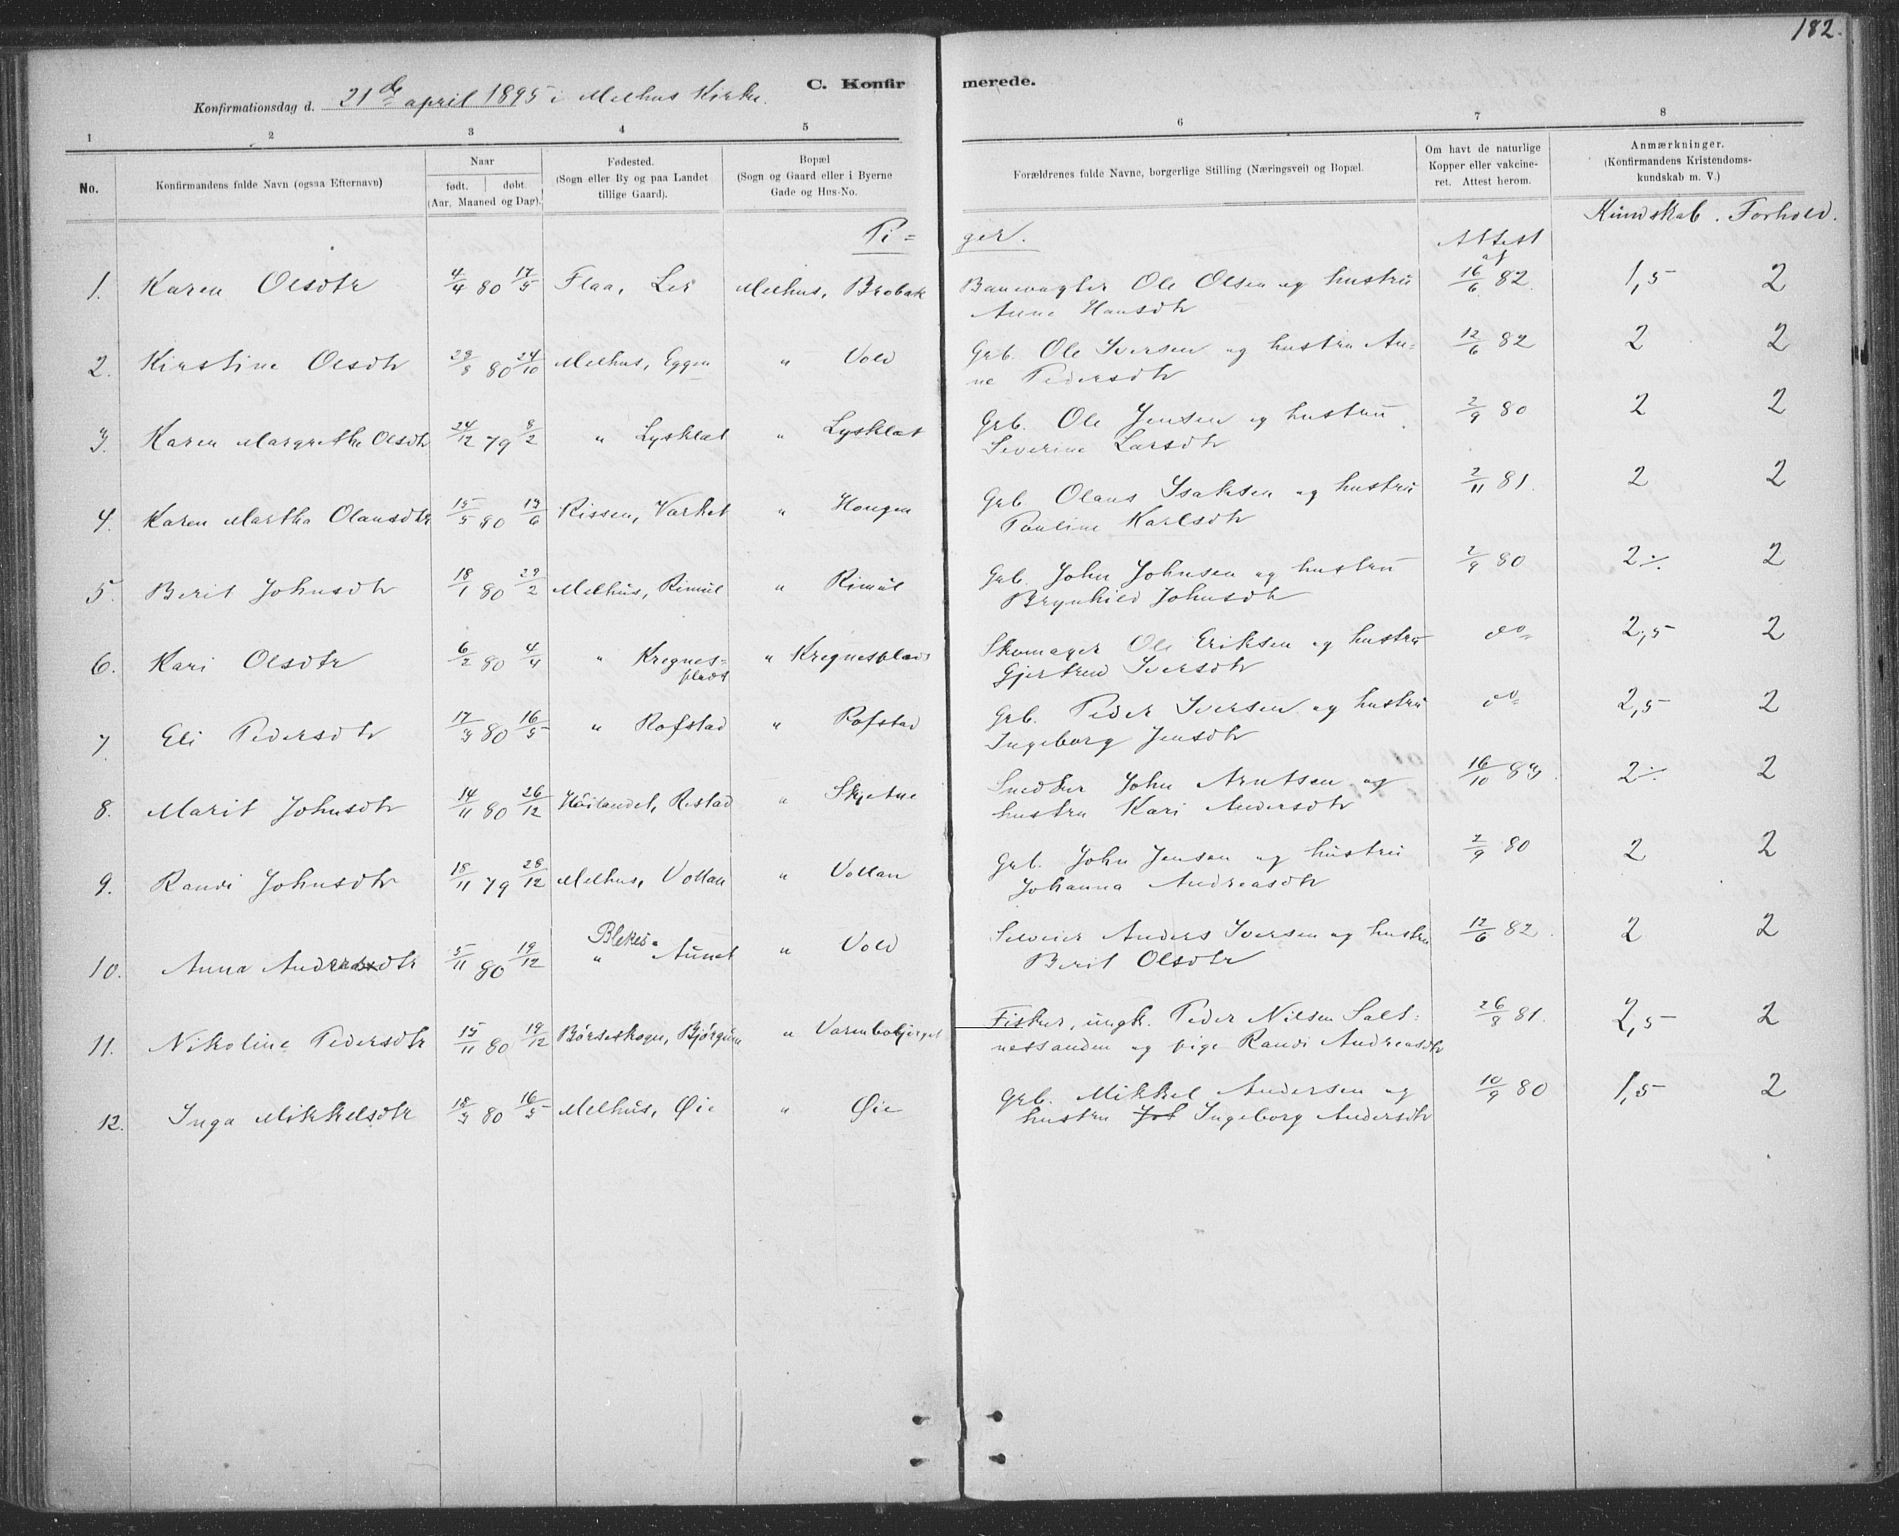 182.
C. Konfir merede.
Konfirmationsdag d. 21de april 1895 i Melhus Kirke.
1 2 3 4 5 6 7 8
No.
Konfirmandens fulde Navn (ogsaa Efternavn)
Naar
født. | døbt.
(Aar, Maaned og Dag).
Fødested.
(Sogn eller By og paa Landet
tillige Gaard).
Bopæl
(Sogn og Gaard eller i Byerne
Gade og Hus-No.
Forældrenes fulde Navne, borgerlige Stilling (Næringsvei) og Bopæl.
Om havt de naturlige
Kopper eller vakcine-
ret. Attest herom.
Anmærkninger.
(Konfirmandens Kristendoms-
kundskab m. V.)
Kundskab. Forhold.
Pi= ger. Attest
af
1. Karen Olsdtr 4/4 80 17/5 Flaa, Ler Melhus, Brobak Banevagter Ole Olsen og hustru 16/6 82. 1,5 2
Anne Hansdtr
2. Kirstine Olsdtr 29/8 80 24/10 Melhus, Eggen " Vold Grb. Ole Iversen og hustru An= 12/6 82 2 2
ne Pedersdtr
3. Karen Margrethe Olsdtr 24/12 79 8/2 " Lysklæt " Lysklæt Grb. Ole Jensen og hustru 2/9 80 2 2
Severine Larsdtr
4. Karen Martha Olausdtr 15/5 80 13/6 Rissen, Varket " Hougen Grb. Olaus Isaksen og hustru 2/11 81. 2 2
Pauline Karlsdtr
5. Berit Johnsdtr 18/1 80 29/2 Melhus, Rimul " Rimul Grb. John Johnsen og hustru 2/9 80 2 ⁒ 2
Brynhild Johnsdtr
6. Kari Olsdtr 6/2 80 4/4 " Kregnes= " Kregnesplads Skomager Ole Eriksen og hustru do 2,5 2
plads Gjertrud Iversdtr
7. Eli Pedersdtr 17/3 80 16/5 " Rofstad " Rofstad Grb. Peder Iversen og hustru do 2,5 2
Ingeborg Jensdtr
8. Marit Johnsdtr 14/11 80 26/12 Høilandet, Restad " Skjetne Snedker John Arntsen og 16/10 83. 2 ⁒ 2
hustru Kari Andersdtr
9. Randi Johnsdtr 18/11 79 28/12 Melhus, Vollan " Vollan Grb. John Jensen og hustru 2/9 80 2 2
Johanna Andreasdtr
10. Anna Andersdtr 5/11 80 19/12 " Blekes= Aunet " Vold Selveier Anders Iversen og hustru 12/6 82. 2 2
Berit Olsdtr
11. Nikoline Pedersdtr 15/11 80 19/12 Børseskogn, Bjørgum " Varmbobjerget Fisker, ungk. Peder Nilsen Salt= 26/8 81. 2,5 2
nessanden og pige Randi Andreasdtr
12. Inga Mikkelsdtr 18/3 80 16/5 Melhus, Øie " Øie Grb. Mikkel Andersen og 10/9 80 1,5 2
hustru Joh Ingeborg Andersdtr